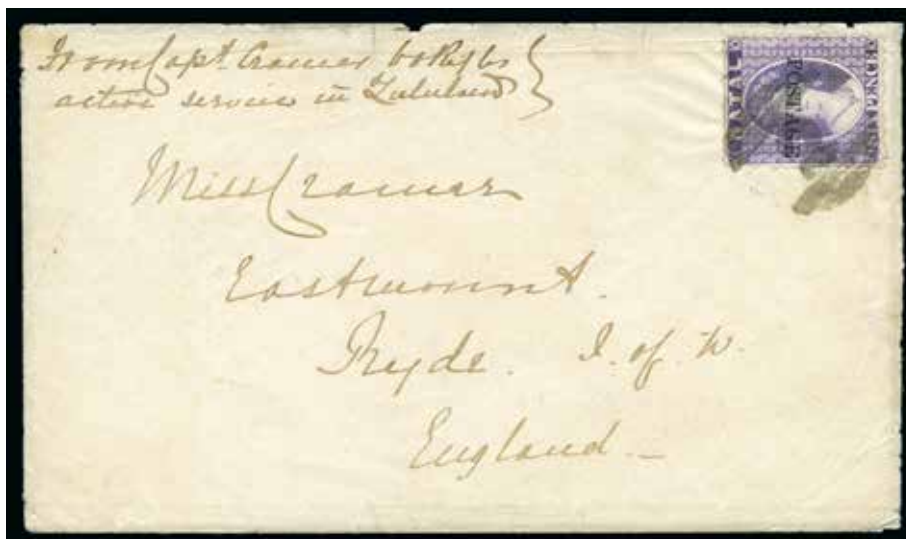 From Capt. Cramer 60 Rifles
active service in Zululand
POSTAGE
Miss Cramer
Eastmount.
Ryde. I. of. W.
England.